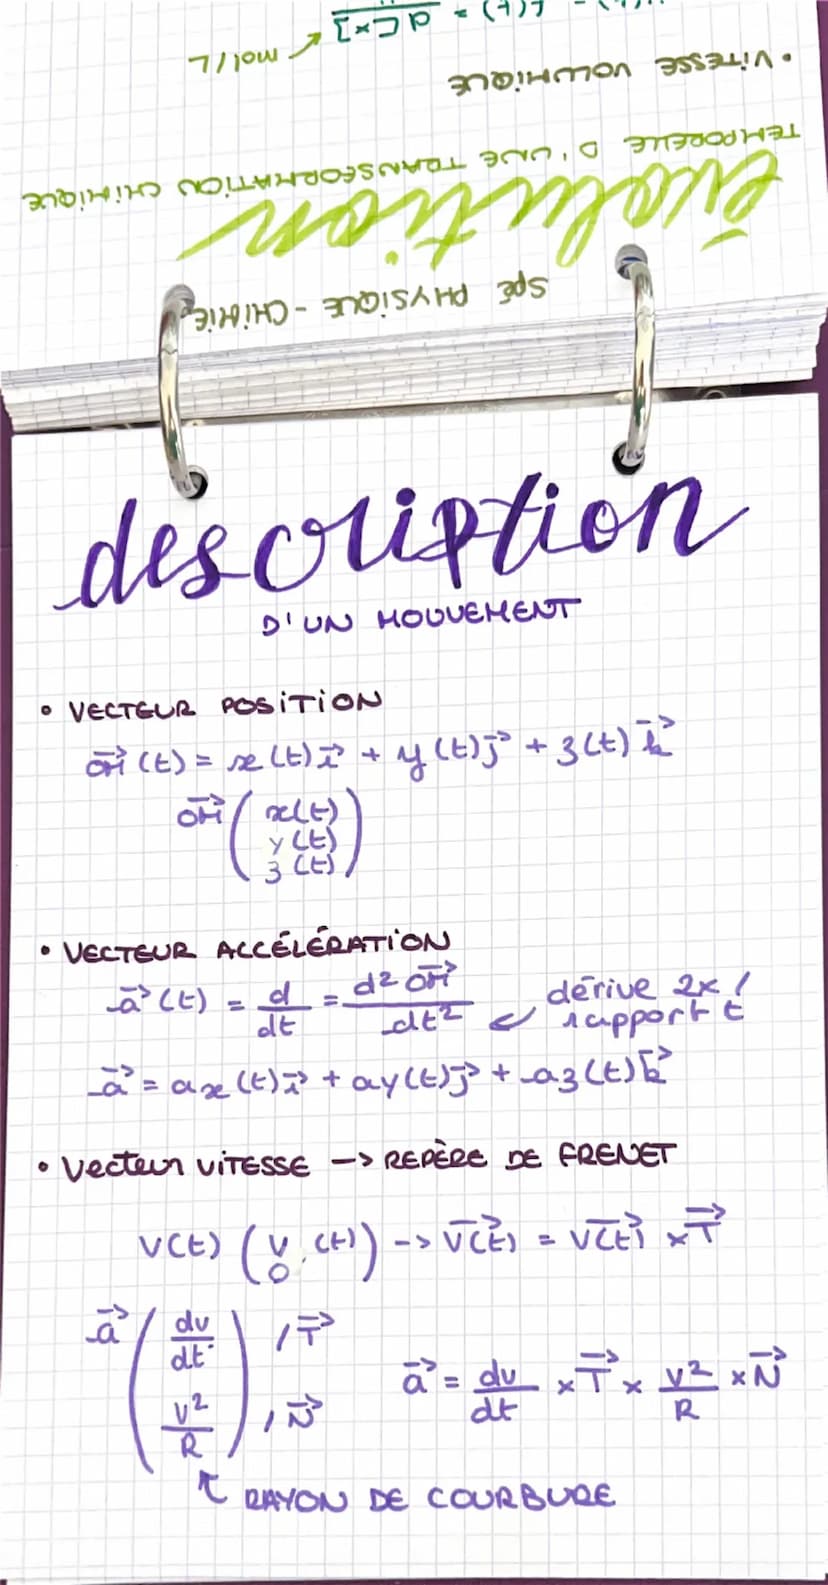 f(t) = d[x]
mol/L
• VITESSE VOLUMIQUE
TEMPORELLE D'UNE TRANSFORMATION CHIMIQUE
évolution
SPÉ PHYSIQUE - CHIMIE
description
D'UN MOUVEMENT
• VECTEUR POSITION
OM→(t) = x(t)i→ + y(t)j→ + z(t)k→
OM→ ( x(t)
y(t)
z(t) )
• VECTEUR ACCÉLÉRATION
a→(t) = d/dt = d2 OM→/dt2 ↙ dérive 2x /
rapport t
a→ = ax(t)i→ + ay(t)j→ + az(t)k→
• Vecteur VITESSE --> REPÈRE DE FRENET
V(t) ( V (t)
0 ) --> V(t)→ = V(t)→ x T→
a→ ( dv/dt ) / T→
( v2/R ) / N→
a→ = dv/dt x T→ x v2/R x N→
↖ RAYON DE COURBURE